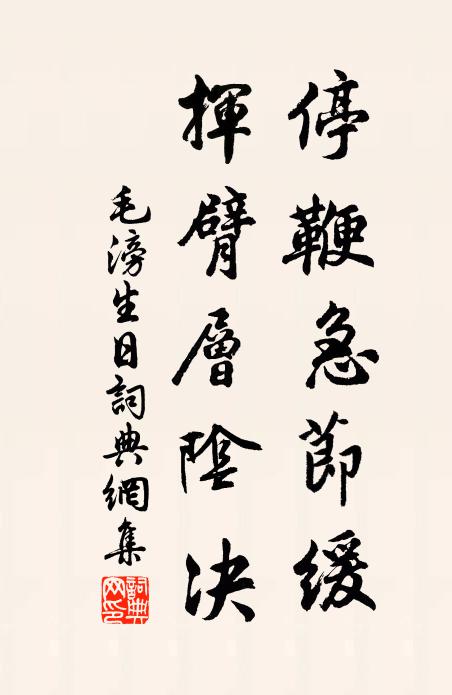 停鞭急節緩
揮臂層陰決
毛滂生日詞典網集
詞典網印